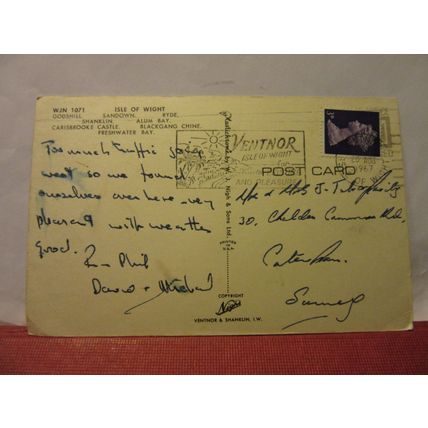 WJN 1071 ISLE OF WIGHT
GODSHILL SANDOWN, RYDE,
SHANKLIN, ALUM BAY,
CARISBROOKE CASTLE, BLACKGANG CHINE.
FRESHWATER BAY.
Too much traffic going
west so we found
ourselves over here very
pleasant with weather
good.
Phil
David + Michael
Published by W. J. Nigh & Sons Ltd.
PRINTED IN
COPYRIGHT
Nigh
VENTNOR & SHANKLIN, I.W.
VENTNOR
ISLE OF WIGHT
for
AND PLEASURE
1967
POST CARD
Mr & Mrs J.
30, Common Rd,
Caterham.
Surrey